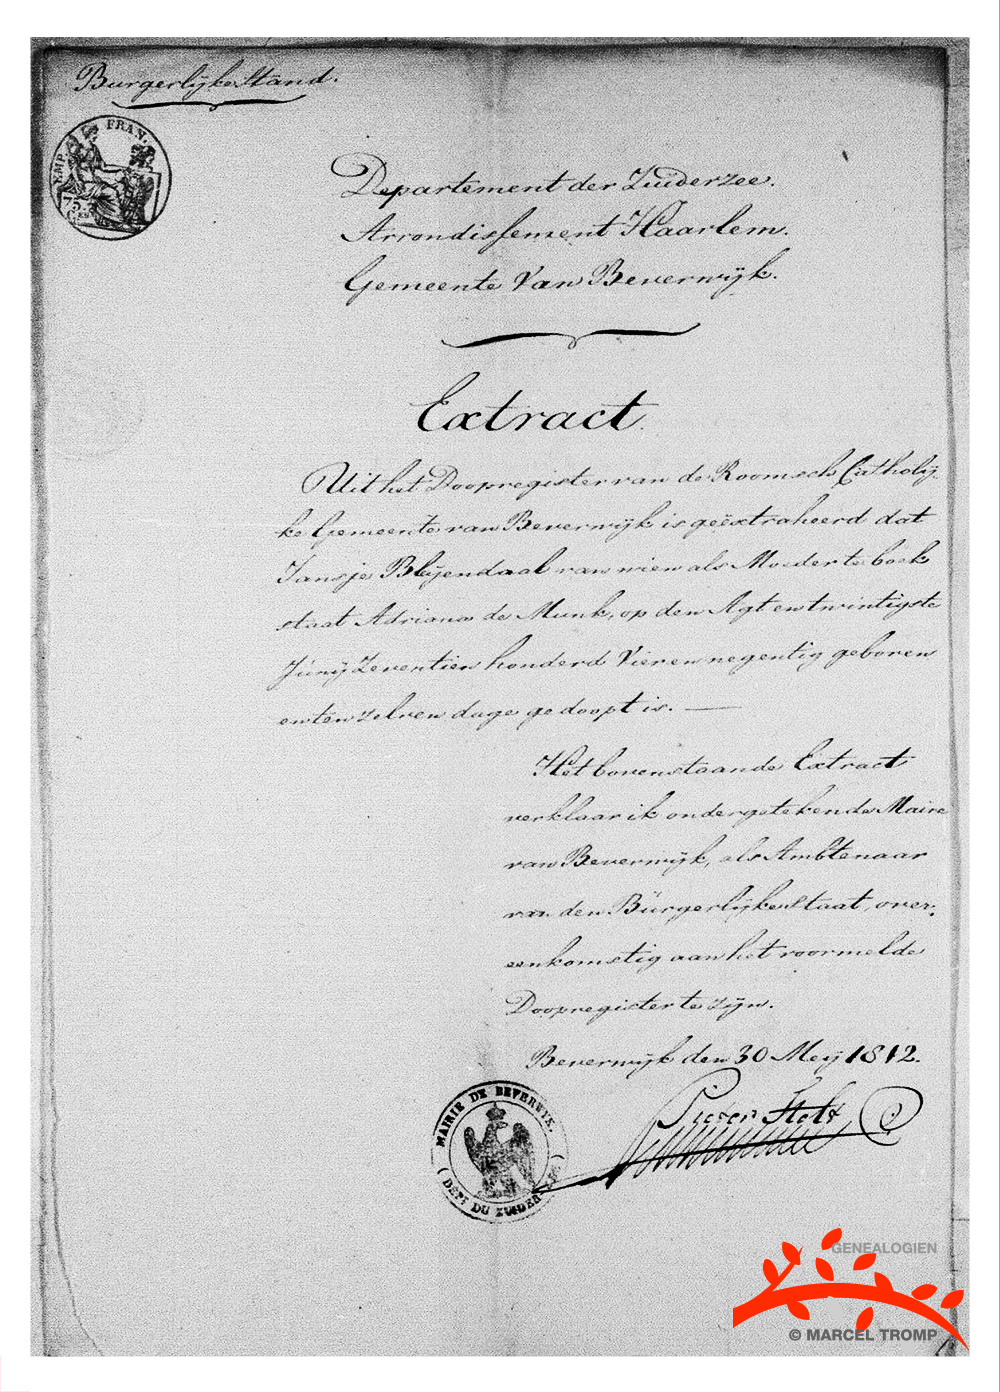 Burgerlijke Stand.
EMP. FRAN.
75.
Ces
Departement der Zuiderzee.
Arrondissement Haarlem.
Gemeente Van Beverwijk.
Extract.
Uit het Doopregister van de Roomsch Catholij-
ke Gemeente van Beverwijk is geëxtraheerd dat
Jansje Bleijendaal van wien als Moeder te boek
staat Adriana de Munk, op den Agt en twintigste
Junij Zeventien honderd Vier en negentig geboren
en ten zelven dage gedoopt is. —
Het bovenstaande Extract
verklaar ik ondergetekende Maire
van Beverwijk, als Ambtenaar
van den Burgerlijke Staat, over-
eenkomstig aan het voormelde
Doopregister te zijn.
Beverwijk den 30 Meij 1812.
Pieter
MAIRIE DE BEVERWYK.
(DEPT DU ZUIDERZEE)
GENEALOGIEN
© MARCEL TROMP